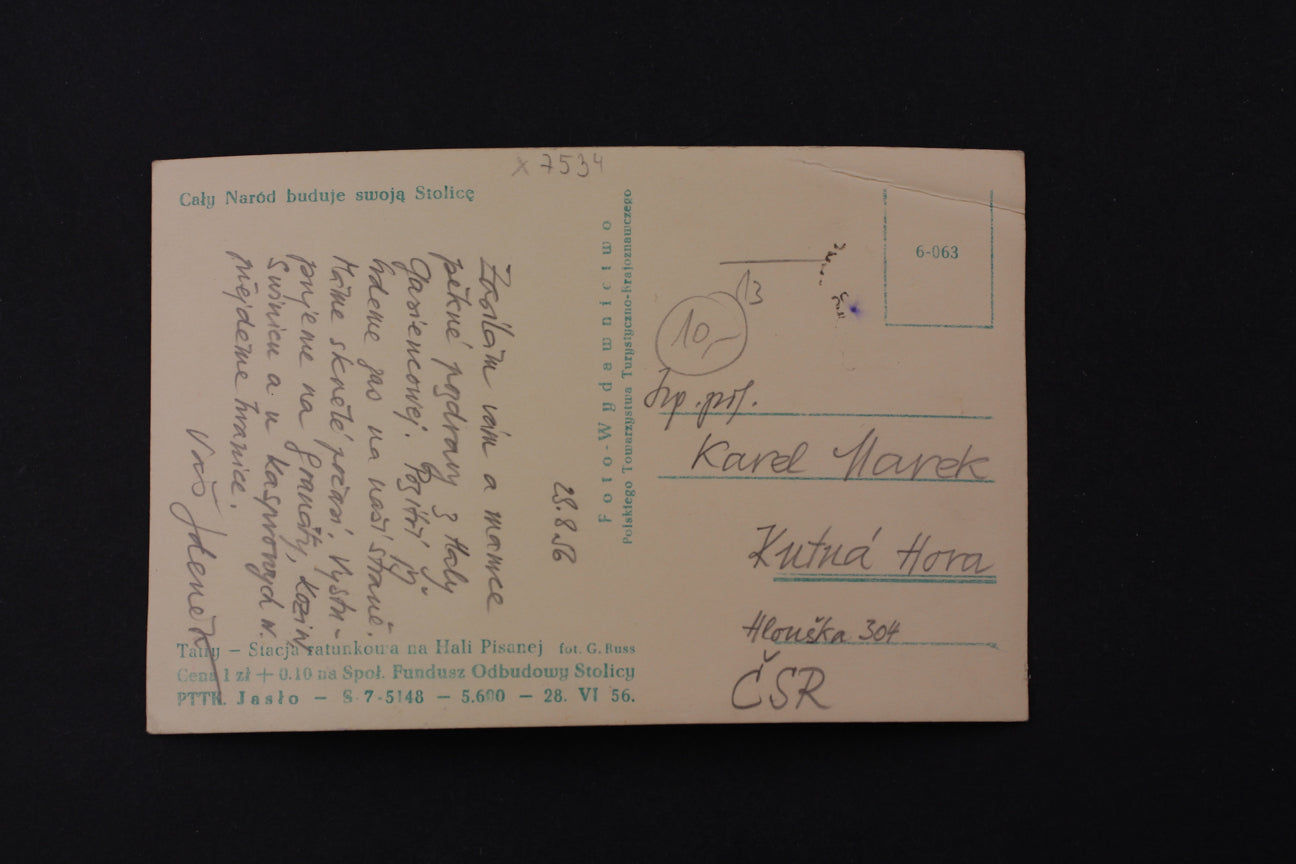 x 7534
Cały Naród buduje swoją Stolicę
28.8.56
Zasílám vám a mamce
pěkné pozdravy z Haly
Gasiencowej. Pozítří již
budeme zas na naší straně.
Máme skvělé počasí. Vystu-
pujeme na Granáty, Kozin,
Swinicu a u Kasprowych w.
přejdeme hranice.
Váš Zdeněk
Tatry — Stacja ratunkowa na Hali Pisanej fot. G. Russ
Cena 1 zł + 0.10 na Społ. Fundusz Odbudowy Stolicy
PTTK. Jasło — S 7-5148 — 5.600 — 28. VI 56.
Foto-Wydawnictwo
Polskiego Towarzystwa Turystyczno-Krajoznawczego
6-063
13
10,-
Karel Marek
Kutná Hora
Hlouška 304
ČSR